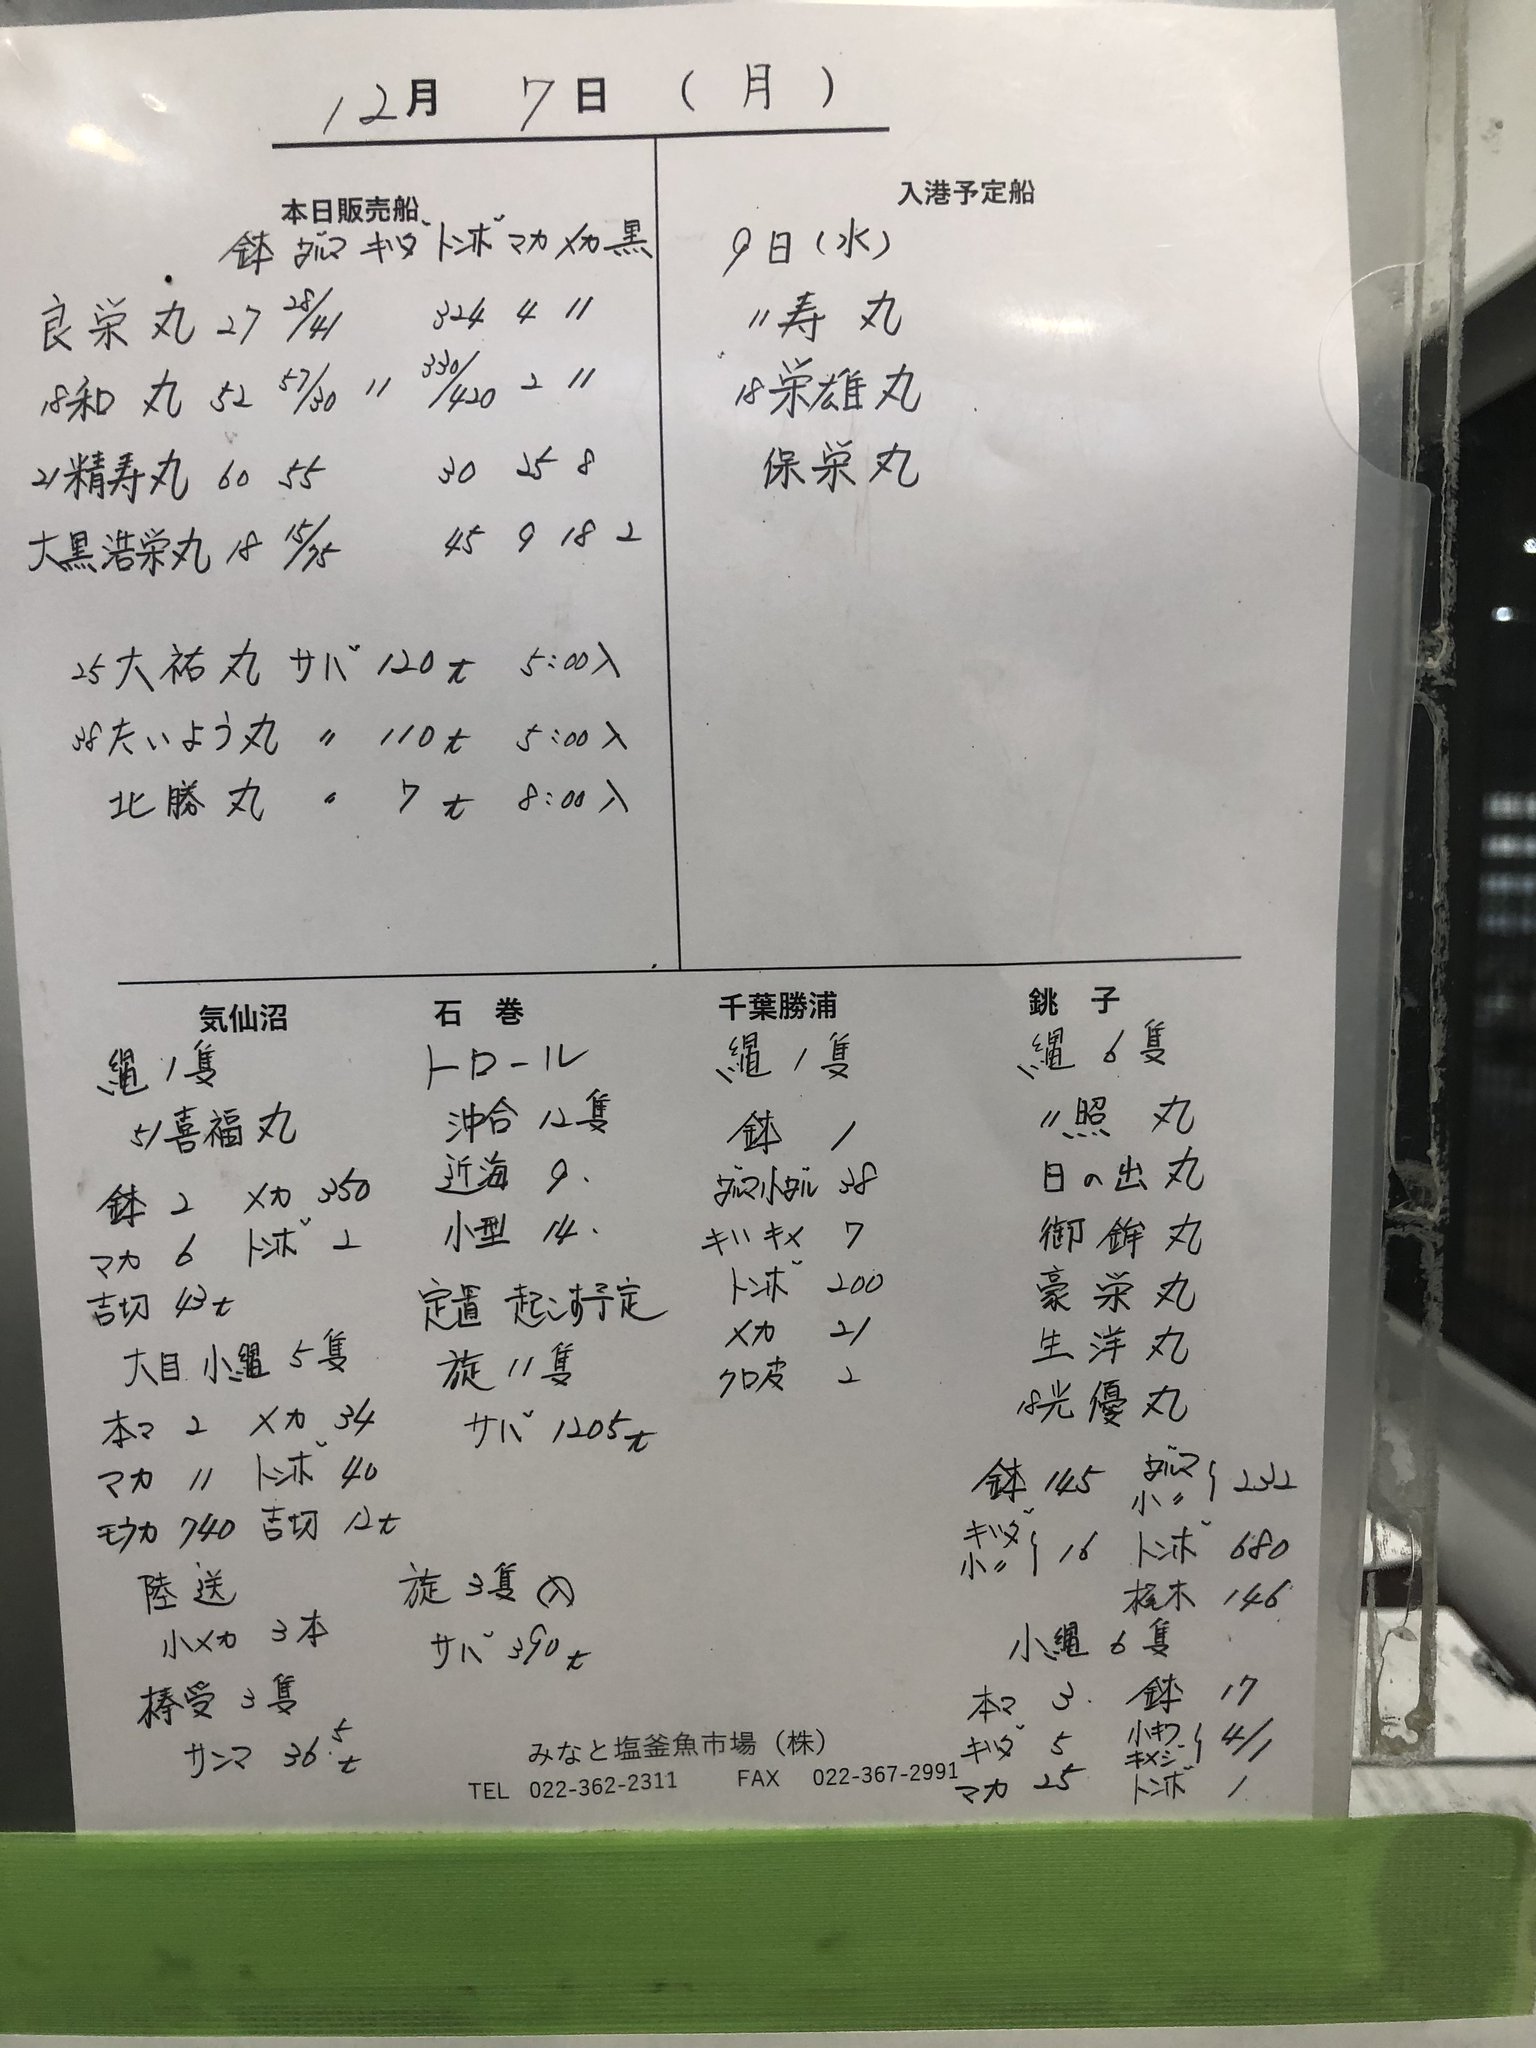 12月 7日 (月)
本日販売船
鉢 ダルマ キハダ トンボ マカ メカ 黒
良栄丸 27 28/41 324 4 11
18和丸 52 57/30 11 330/420 2 11
21精寿丸 60 55 30 25 8
大黒浩栄丸 18 15/75 45 9 18 2
25大祐丸 サバ 120t 5:00入
38たいよう丸 〃 110t 5:00入
北勝丸 〃 7t 8:00入
入港予定船
9日(水)
11寿丸
18栄雄丸
保栄丸
気仙沼
縄1隻
51喜福丸
鉢 2 メカ 350
マカ 6 トンボ 2
吉切 43t
大目 小縄 5隻
本マ 2 メカ 34
マカ 11 トンボ 40
モウカ 740 吉切 12t
陸送
小メカ 3本
棒受 3隻
サンマ 36.5t
石巻
トロール
沖合 12隻
近海 9.
小型 14.
定置 起こす予定
旋 11隻
サバ 1205t
旋 3隻 (入)
サバ 390t
千葉勝浦
縄 1隻
鉢 1
ダルマ小ダル 38
キハ キメ 7
トンボ 200
メカ 21
クロ皮 2
銚子
縄 6隻
11照丸
日の出丸
御鉾丸
豪栄丸
生洋丸
18光優丸
鉢 145 ダルマ 小〃 } 232
キハダ 小〃 } 16 トンボ 680
梶木 146
小縄 6隻
本マ 3. 鉢 17
キハダ 5 小キワ キメジ } 4/1
マカ 25 トンボ 1
みなと塩釜魚市場(株)
TEL 022-362-2311 FAX 022-367-2991